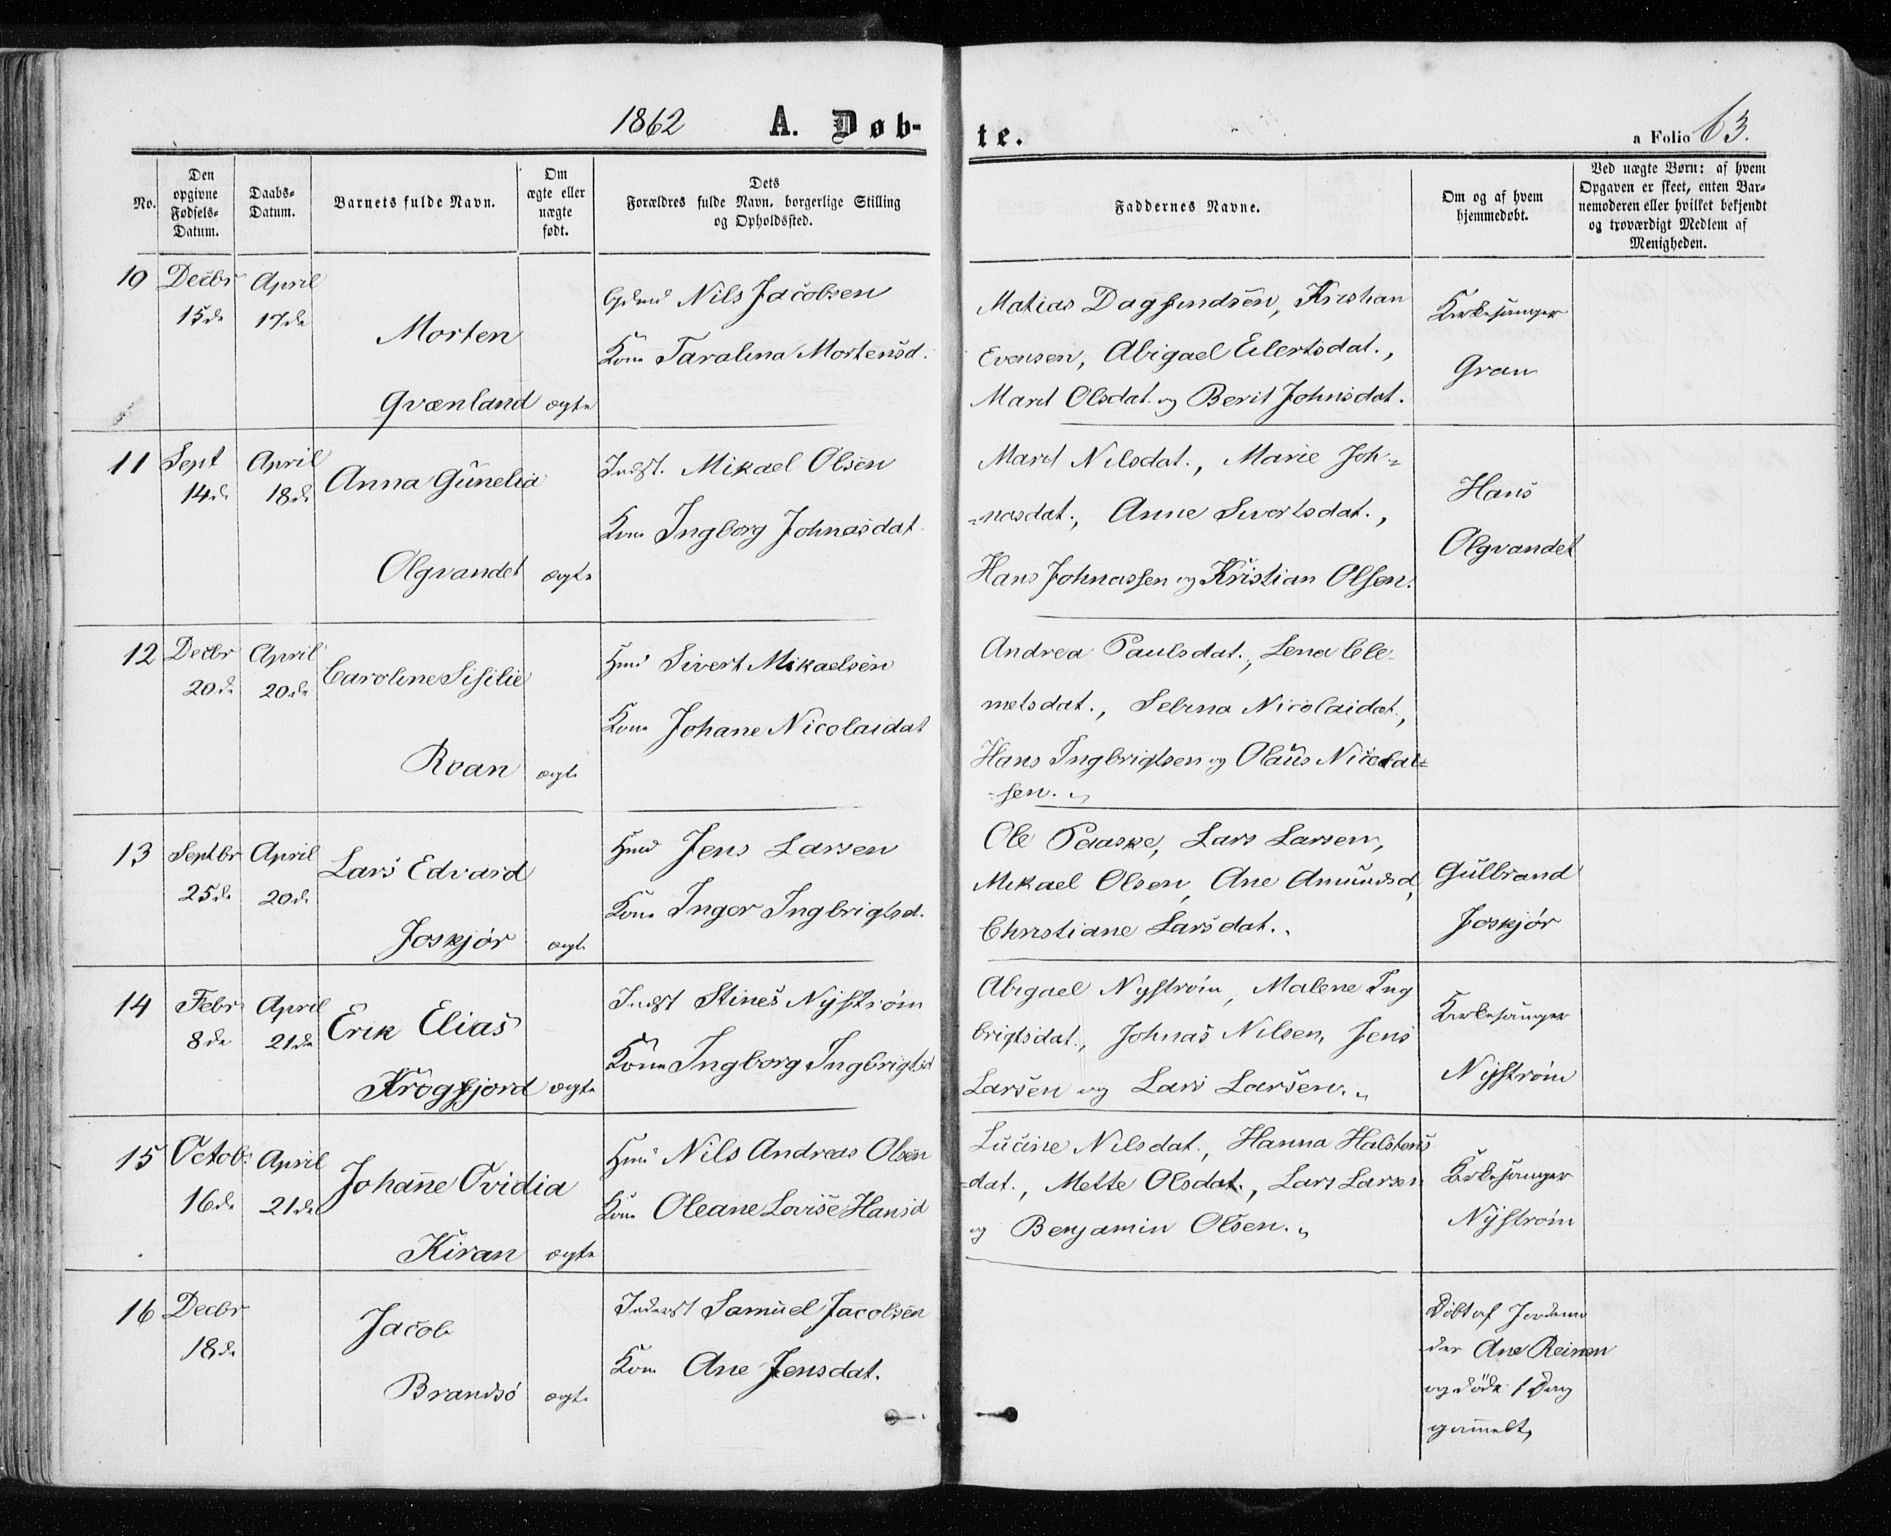 1862 A. Døb-
te.
a Folio 63.
No.
Den opgivne Fødsels-Datum.
Daabs-Datum.
Barnets fulde Navn.
Om ægte eller uægte født.
Dets Forældres fulde Navn, borgerlige Stilling og Opholdssted.
Faddernes Navne.
Om og af hvem hjemmedøbt.
Ved uægte Børn: af hvem Opgaven er skeet, enten Barnemoderen eller hvilket bekjendt og troværdigt Medlem af Menigheden.
10 Decbr April
15de 17de
Morten
Qvænland ægte
Nils Jacobsen
Kone Taralina Mortensd.
Matias Dagfindsen, Kristian
Evensen, Abigael Eilertsdat.,
Marit Olsdat. og Berit Johnsdat.
Kirkesanger
Gran
11 Sept April
14de 18de
Anna Gunelia
Olgvandet ægte
Inдst. Mikael Olsen
Kone Ingborg Johnasdat.
Marit Nilsdat., Marie Joh-
-nasdat., Anne Sivertsdat.,
Hans Johnassen og Kristian Olsen.
Hans
Olgvandet
12 Decbr April
20de 20de
Caroline Sisilie
Roan ægte
Hmd Sivert Mikaelsen
Kone Johane Nicolaidat
Andrea Paulsdat., Lena Cle-
metsdat., Selina Nicolaidat.,
Hans Ingbrigtsen og Olaus Nicolai-
-sen.
13 Septbr April
25de 20de
Lars Edvard
Joskjør ægte
Hmd Jens Larsen
Kone Inger Ingbrigtsd.
Ole Paaske, Lars Larsen,
Mikael Olsen, Ane Amundsd,
Christiane Larsdat.
Gulbrand
Joskjør
14 Febr April
8de 21de
Erik Elias
Krogfjord ægte
Indst Stines Nyström
Kone Ingborg Ingbrigtsd
Abigael Nyström, Malene Ing
brigtsdat., Johnas Nilsen, Jens
Larsen og Lars Larsen.
Kirkesanger
Nyström
15 Octob. April
16de 21de
Johanne Ovidia
Kiran ægte
Hmd Nils Andreas Olsen
Kone Oleane Lovise Hansd
Lucine Nilsdat., Hanna Halstens
-dat., Mette Olsdat., Lars Larsen
og Benjamin Olsen.
Kirkesanger
Nyström
16 Decbr
18de
Jacob
Brandsø ægte
Inderst Samuel Jacobsen
Kone Ane Jensdat.
Døbt af Jordemo
der Ane Reinen
og døde 1 Dag
gammelt,